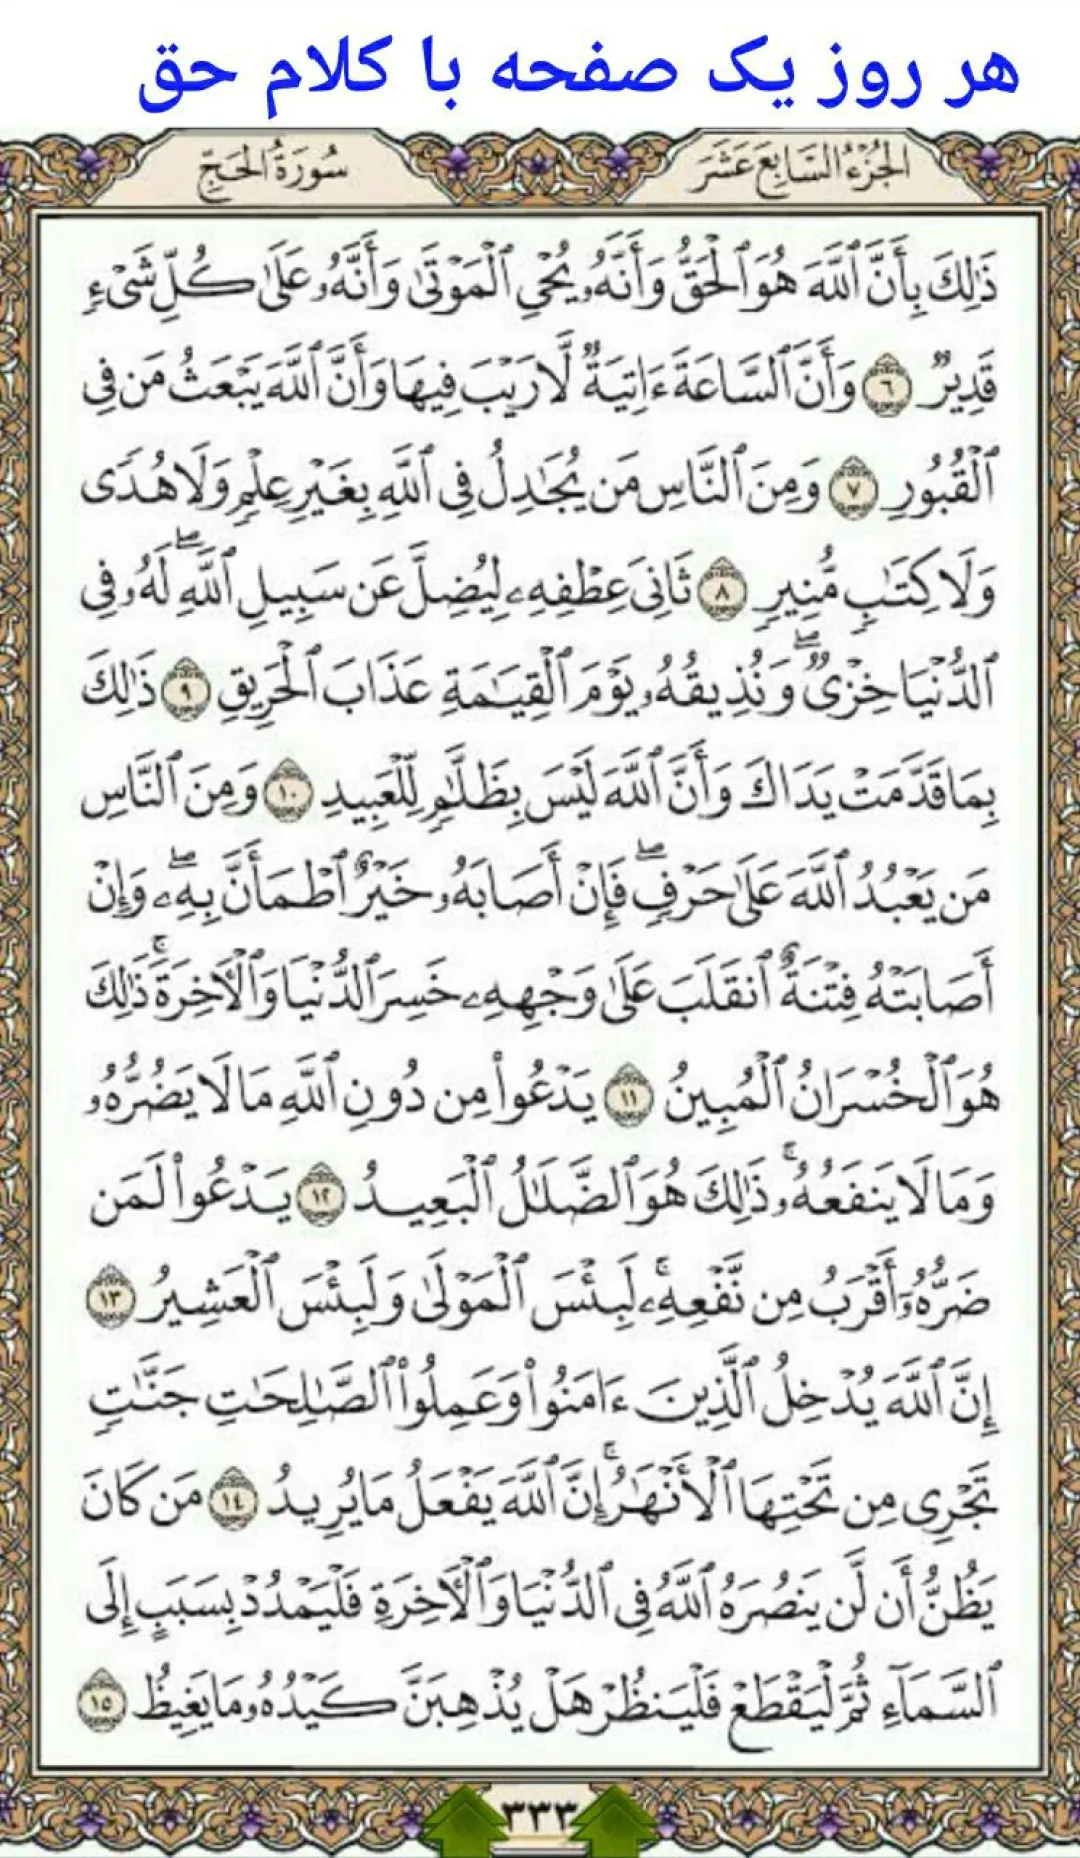 هر روز یک صفحه با کلام حق
الجُزْءُ السَّابِعَ عَشَرَ
سُورَةُ الحَجِّ
ذَٰلِكَ بِأَنَّ ٱللَّهَ هُوَ ٱلْحَقُّ وَأَنَّهُۥ يُحْيِ ٱلْمَوْتَىٰ وَأَنَّهُۥ عَلَىٰ كُلِّ شَىْءٍ
قَدِيرٌ ٦ وَأَنَّ ٱلسَّاعَةَ ءَاتِيَةٌ لَّا رَيْبَ فِيهَا وَأَنَّ ٱللَّهَ يَبْعَثُ مَن فِى
ٱلْقُبُورِ ٧ وَمِنَ ٱلنَّاسِ مَن يُجَٰدِلُ فِى ٱللَّهِ بِغَيْرِ عِلْمٍ وَلَا هُدًى
وَلَا كِتَٰبٍ مُّنِيرٍ ٨ ثَانِىَ عِطْفِهِۦ لِيُضِلَّ عَن سَبِيلِ ٱللَّهِ ۖ لَهُۥ فِى
ٱلدُّنْيَا خِزْىٌ ۖ وَنُذِيقُهُۥ يَوْمَ ٱلْقِيَٰمَةِ عَذَابَ ٱلْحَرِيقِ ٩ ذَٰلِكَ
بِمَا قَدَّمَتْ يَدَاكَ وَأَنَّ ٱللَّهَ لَيْسَ بِظَلَّٰمٍ لِّلْعَبِيدِ ١٠ وَمِنَ ٱلنَّاسِ
مَن يَعْبُدُ ٱللَّهَ عَلَىٰ حَرْفٍ ۖ فَإِنْ أَصَابَهُۥ خَيْرٌ ٱطْمَأَنَّ بِهِۦ ۖ وَإِنْ
أَصَابَتْهُ فِتْنَةٌ ٱنقَلَبَ عَلَىٰ وَجْهِهِۦ خَسِرَ ٱلدُّنْيَا وَٱلْءَاخِرَةَ ۚ ذَٰلِكَ
هُوَ ٱلْخُسْرَانُ ٱلْمُبِينُ ١١ يَدْعُوا۟ مِن دُونِ ٱللَّهِ مَا لَا يَضُرُّهُۥ
وَمَا لَا يَنفَعُهُۥ ۚ ذَٰلِكَ هُوَ ٱلضَّلَٰلُ ٱلْبَعِيدُ ١٢ يَدْعُوا۟ لَمَن
ضَرُّهُۥٓ أَقْرَبُ مِن نَّفْعِهِۦ ۚ لَبِئْسَ ٱلْمَوْلَىٰ وَلَبِئْسَ ٱلْعَشِيرُ ١٣
إِنَّ ٱللَّهَ يُدْخِلُ ٱلَّذِينَ ءَامَنُوا۟ وَعَمِلُوا۟ ٱلصَّٰلِحَٰتِ جَنَّٰتٍ
تَجْرِى مِن تَحْتِهَا ٱلْأَنْهَٰرُ ۚ إِنَّ ٱللَّهَ يَفْعَلُ مَا يُرِيدُ ١٤ مَن كَانَ
يَظُنُّ أَن لَّن يَنصُرَهُ ٱللَّهُ فِى ٱلدُّنْيَا وَٱلْءَاخِرَةِ فَلْيَمْدُدْ بِسَبَبٍ إِلَى
ٱلسَّمَآءِ ثُمَّ لْيَقْطَعْ فَلْيَنظُرْ هَلْ يُذْهِبَنَّ كَيْدُهُۥ مَا يَغِيظُ ١٥
٣٣٣